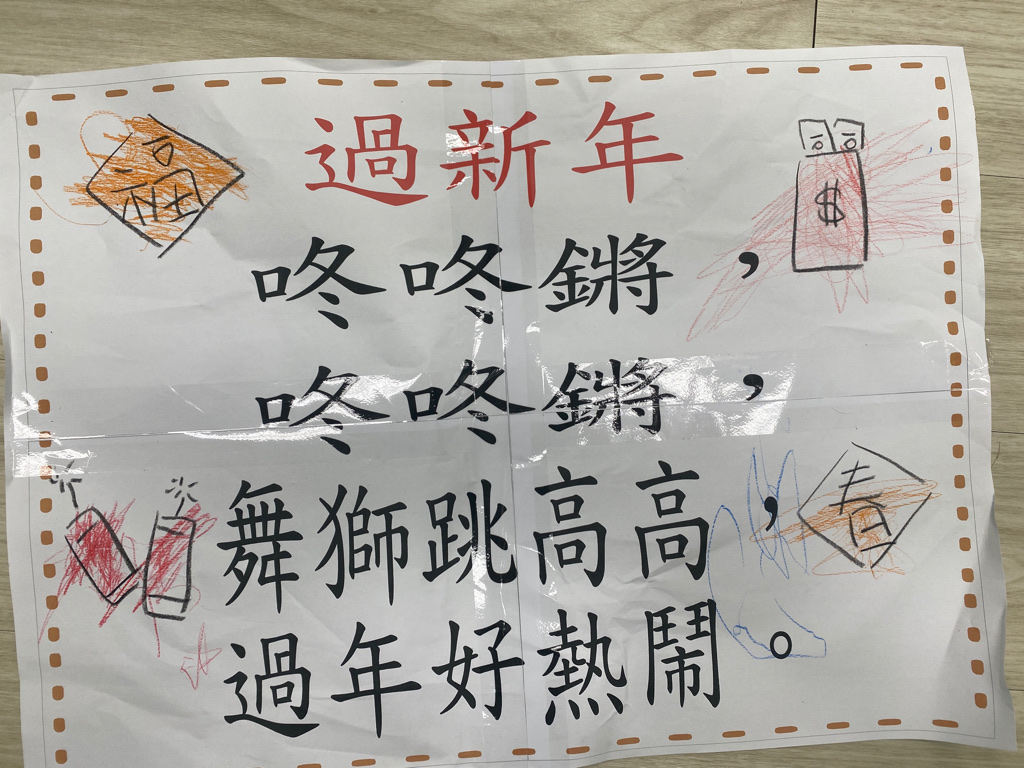 過新年
咚咚鏘，
咚咚鏘，
舞獅跳高高，
過年好熱鬧。
福
$
春